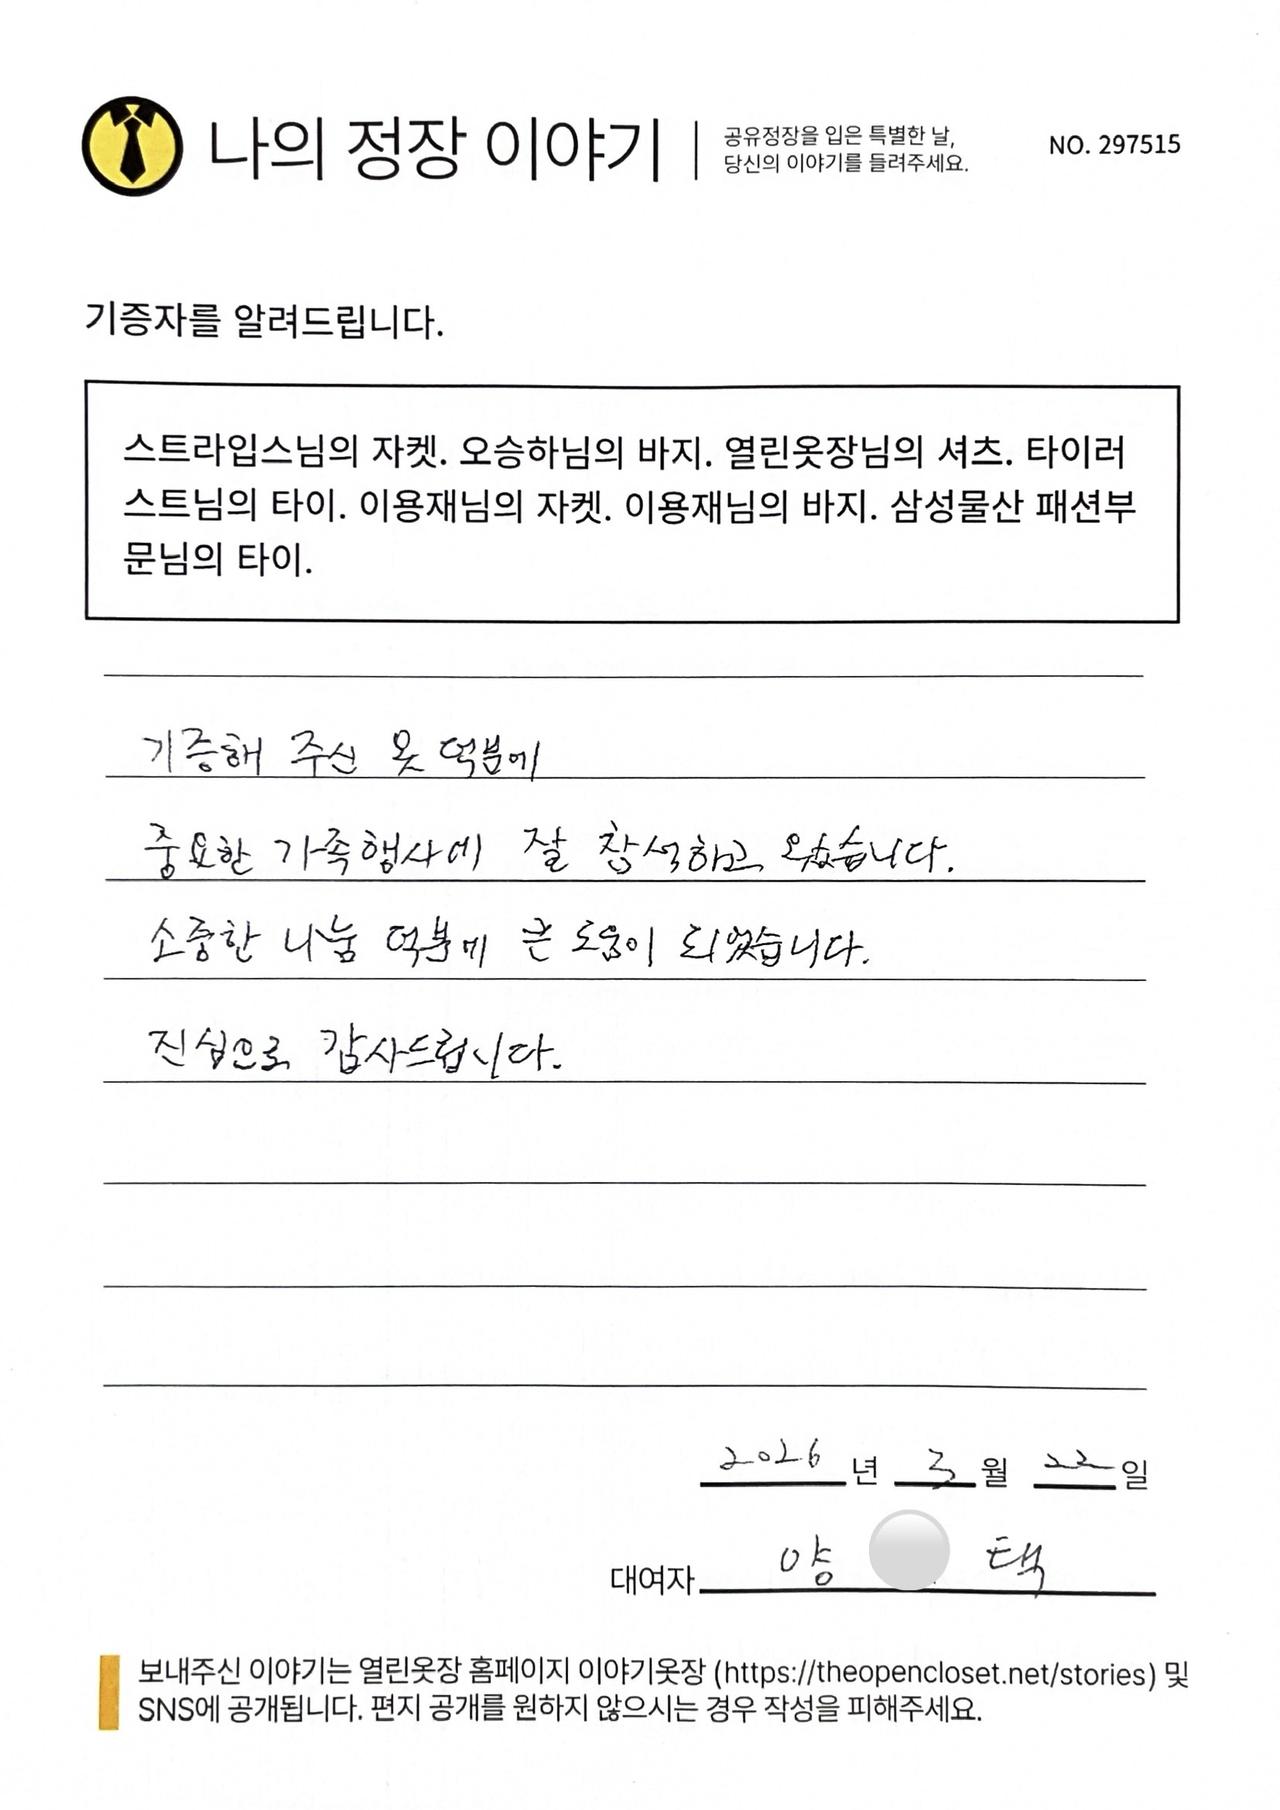 나의 정장 이야기
공유정장을 입은 특별한 날,
당신의 이야기를 들려주세요.
NO. 297515
기증자를 알려드립니다.
스트라입스님의 자켓. 오승하님의 바지. 열린옷장님의 셔츠. 타이러
스트님의 타이. 이용재님의 자켓. 이용재님의 바지. 삼성물산 패션부
문님의 타이.
기증해 주신 옷 덕분에
중요한 가족행사에 잘 참석하고 왔습니다.
소중한 나눔 덕분에 큰 도움이 되었습니다.
진심으로 감사드립니다.
2026 년 3 월 22 일
대여자 양 택
보내주신 이야기는 열린옷장 홈페이지 이야기옷장 (https://theopencloset.net/stories) 및
SNS에 공개됩니다. 편지 공개를 원하지 않으시는 경우 작성을 피해주세요.